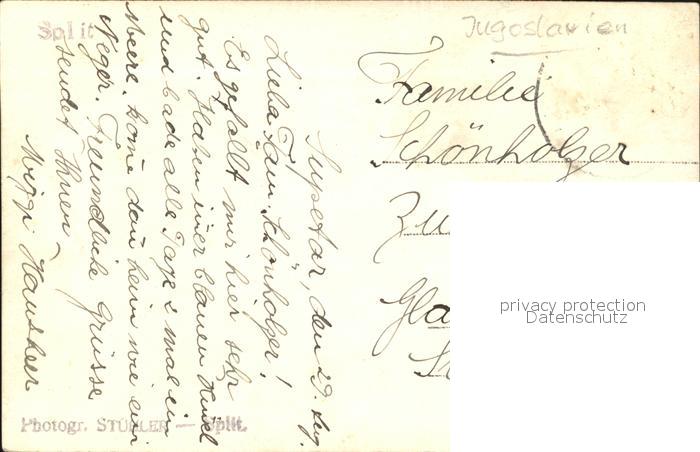 Split
Jugoslavien
Supetar, den 29. Aug.
Liebe Fam. Schönholzer!
Es gefällt mir hier sehr
gut. Haben immer blauen Himmel
und bade alle Tage 2 mal im
Meere, kome dan heim wie ein
Neger. Freundliche Grüsse
sendet Ihnen
Familie
Schönholzer
Gla
Photogr. STÜHLER — Split.
privacy protection
Datenschutz